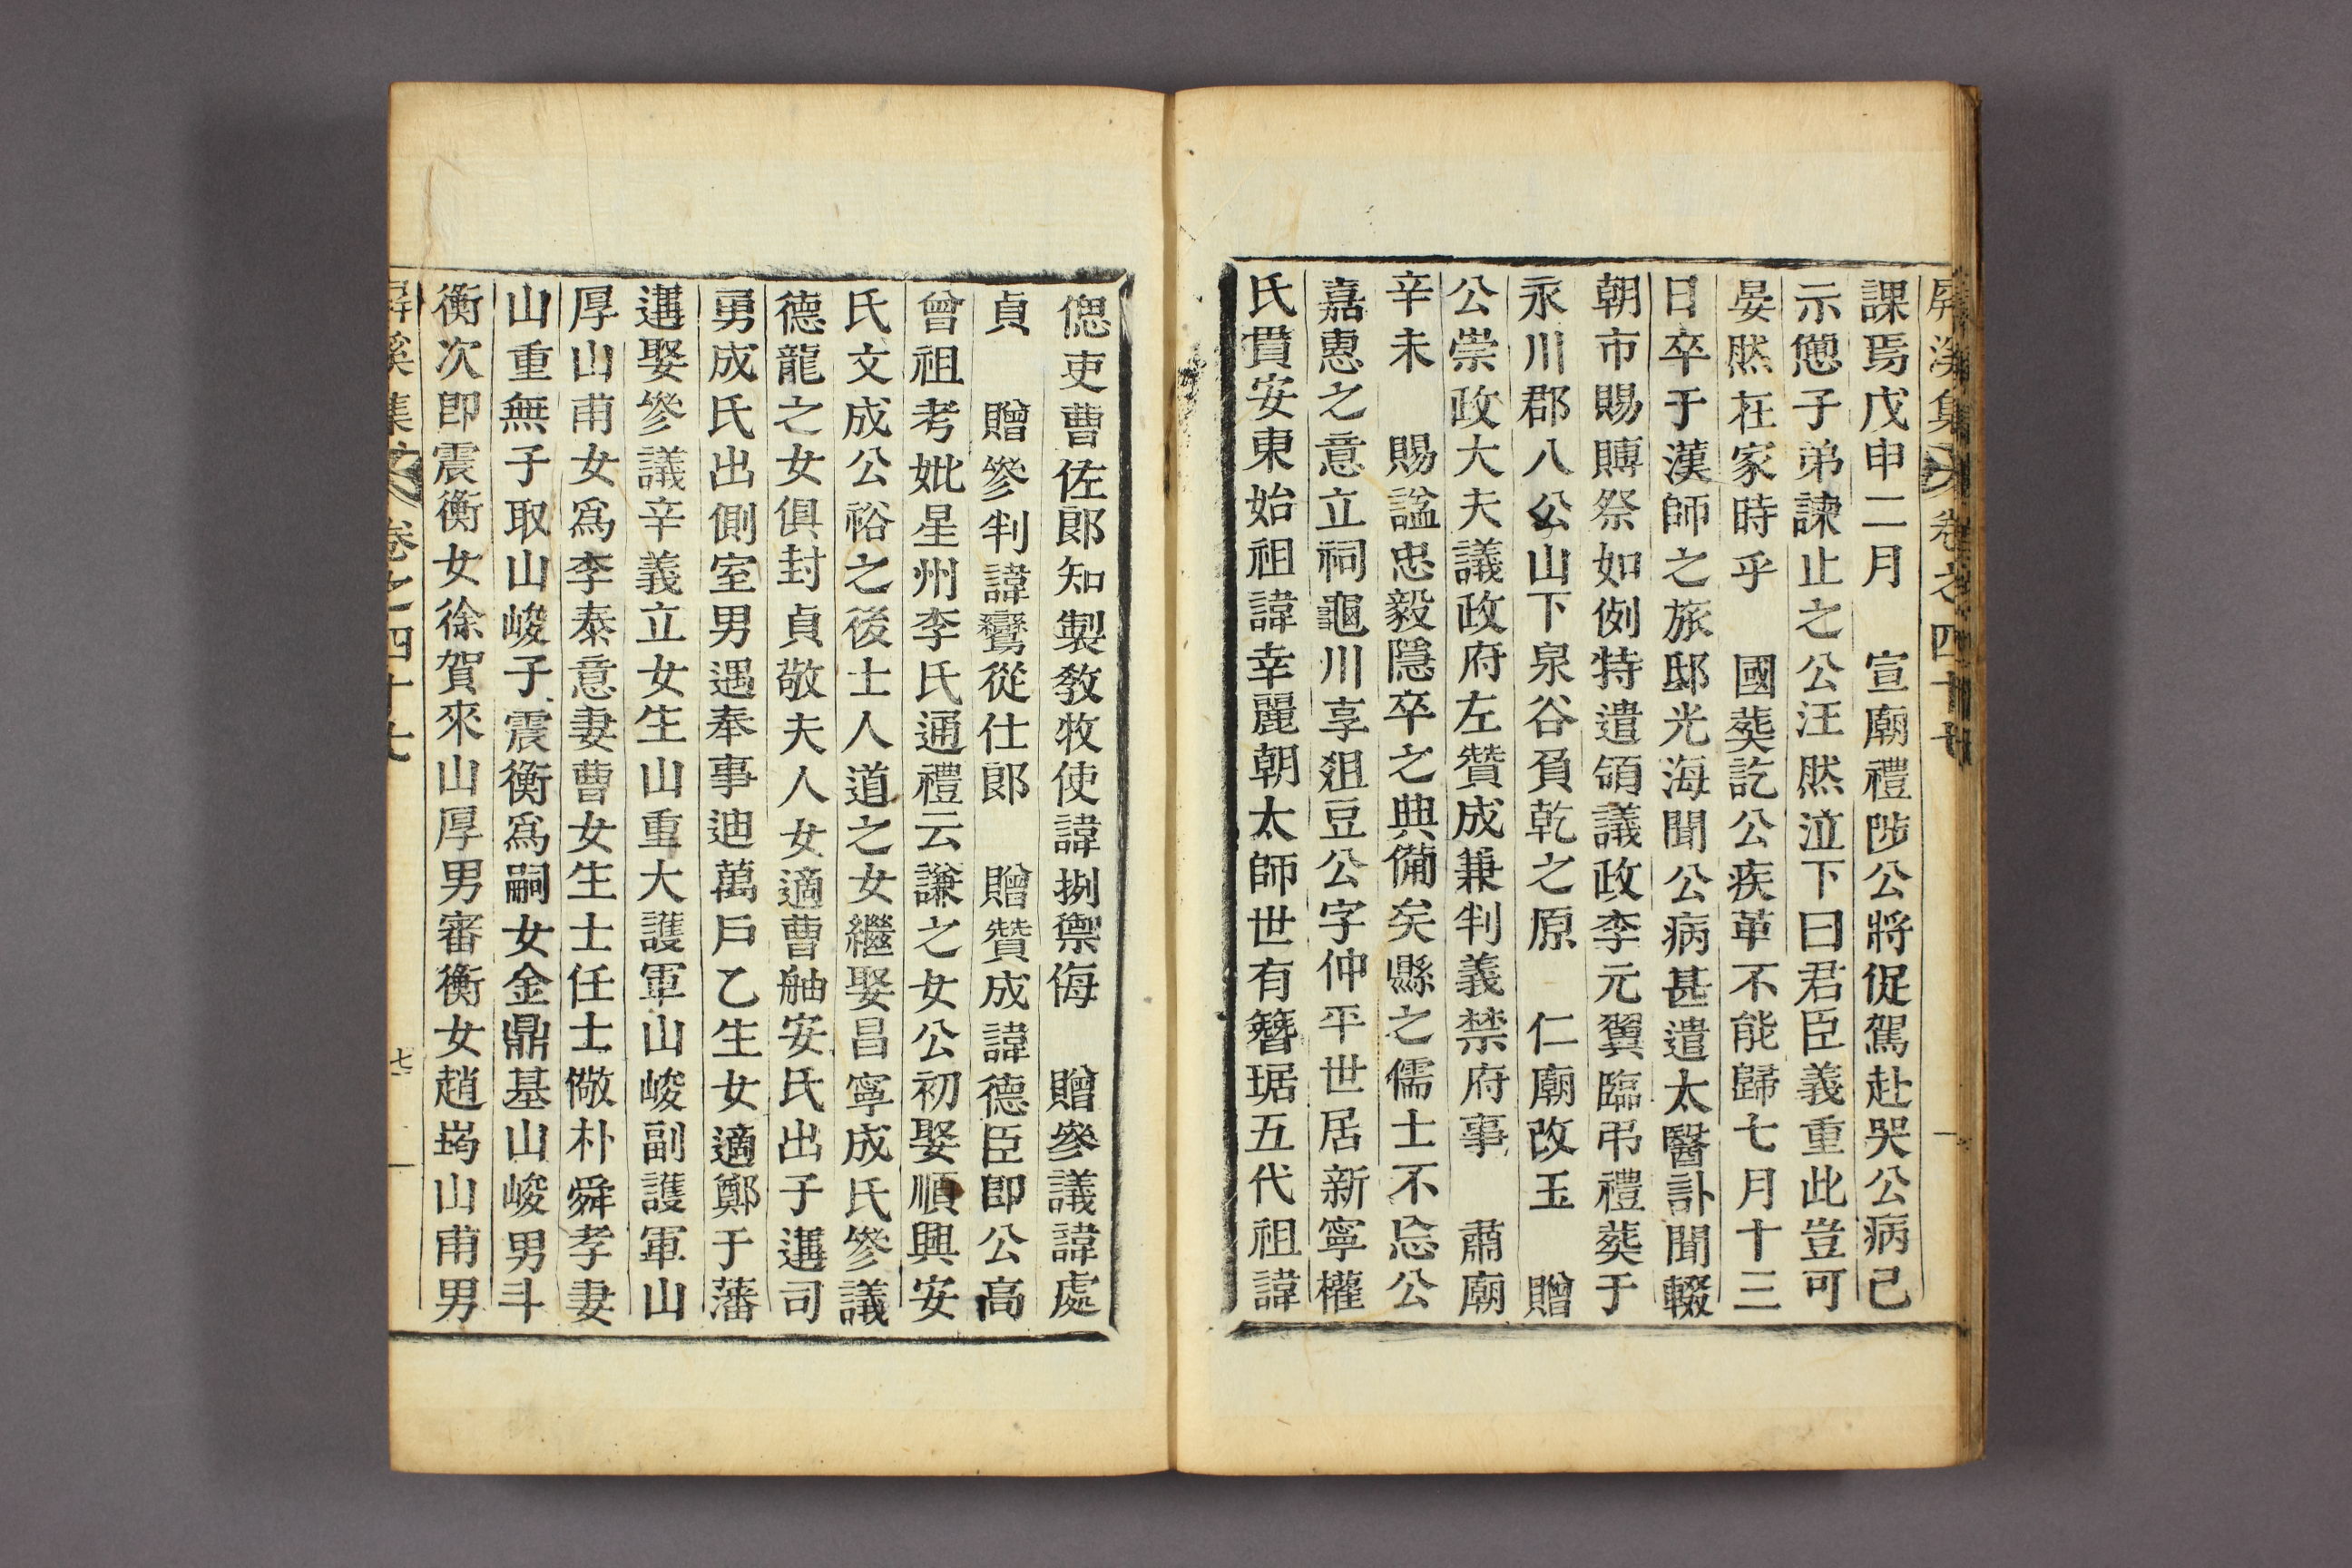 屛溪集 卷之四十七
課焉戊申二月 宣廟禮陟公將促駕赴哭公病已
示憊子弟諫止之公汪然泣下曰君臣義重此豈可
晏然在家時乎 國葬訖公疾革不能歸七月十三
日卒于漢師之旅邸光海聞公病甚遣太醫訃聞輟
朝市賜賻祭如例特遣領議政李元翼臨弔禮葬于
永川郡八公山下泉谷負乾之原 仁廟改玉 贈
公崇政大夫議政府左贊成兼判義禁府事 肅廟
辛未 賜諡忠毅隱卒之典備矣縣之儒士不忘公
嘉惠之意立祠龜川享俎豆公字仲平世居新寧權
氏貫安東始祖諱幸麗朝太師世有簪琚五代祖諱
偲吏曹佐郎知製敎牧使諱捌禦侮 贈參議諱處
貞 贈參判諱鸞從仕郎 贈贊成諱德臣卽公高
曾祖考妣星州李氏通禮云謙之女公初娶順興安
氏文成公裕之後士人道之女繼娶昌寧成氏參議
德龍之女俱封貞敬夫人女適曹舳安氏出子遘司
勇成氏出側室男遇奉事迪萬戶乙生女適鄭于藩
遘娶參議辛義立女生山重大護軍山峻副護軍山
厚山甫女爲李泰意妻曹女生士任士儆朴舜孝妻
山重無子取山峻子震衡爲嗣女金鼎基山峻男斗
衡次卽震衡女徐賀來山厚男審衡女趙㘦山甫男
屛溪集 卷之四十七 七